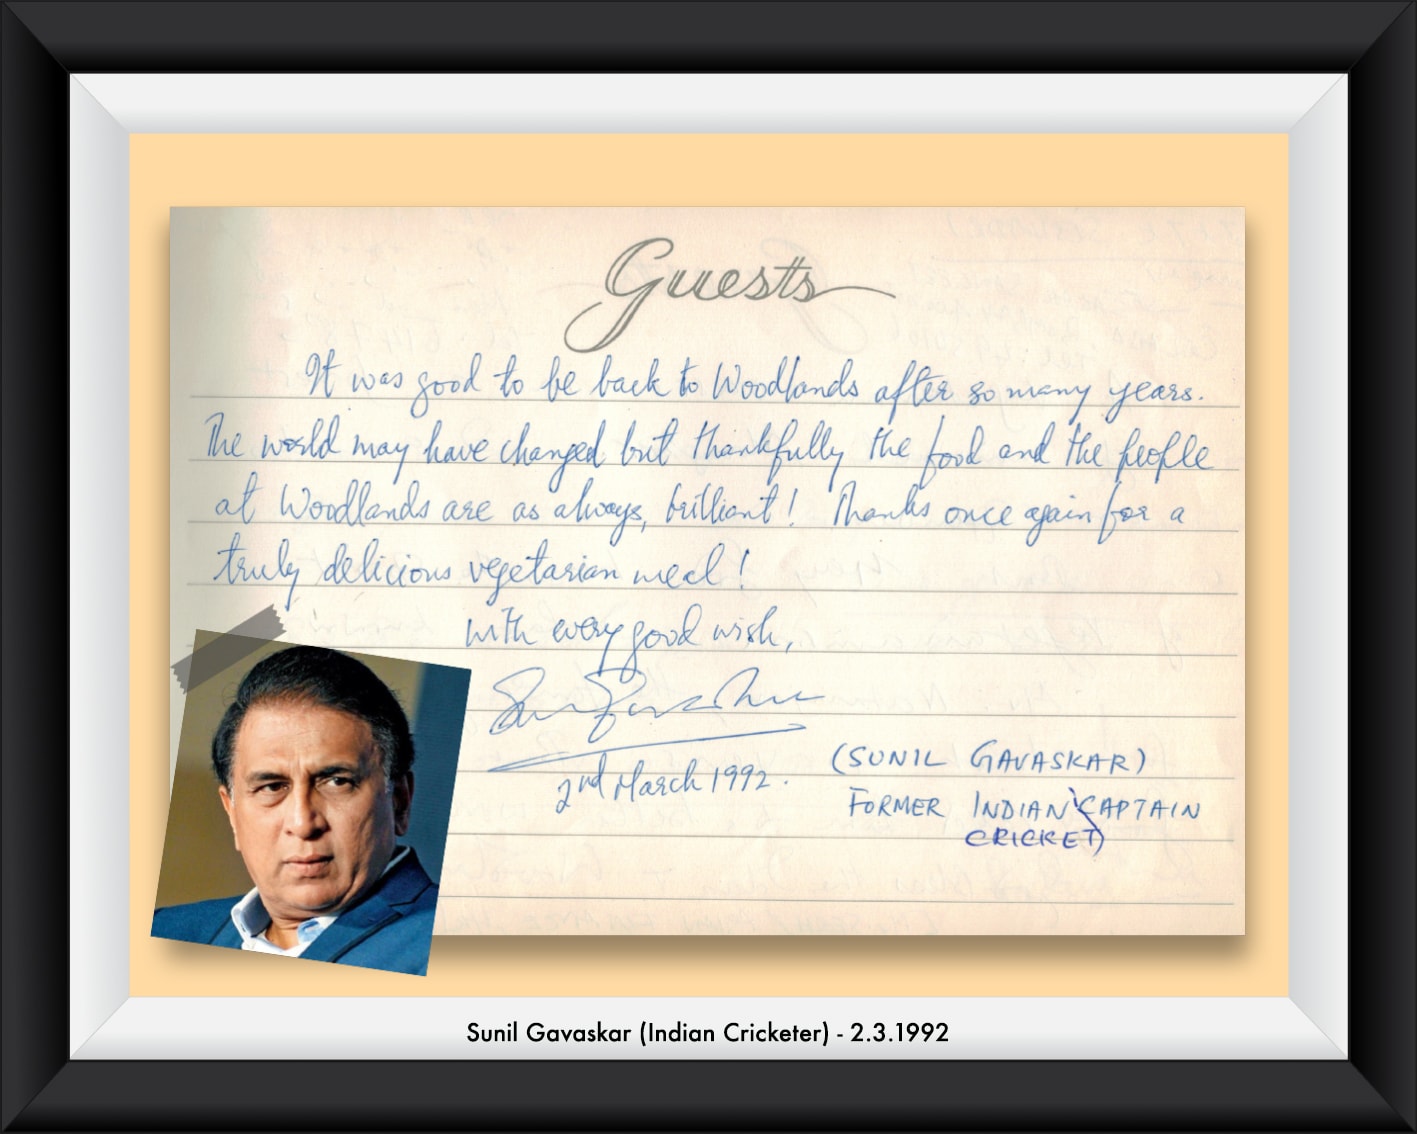 Guests
It was good to be back to Woodlands after so many years.
The world may have changed but thankfully the food and the people
at Woodlands are as always, brilliant! Thanks once again for a
truly delicious vegetarian meal!
with every good wish,
2nd March 1992.
(SUNIL GAVASKAR)
FORMER INDIAN CAPTAIN
CRICKET
Sunil Gavaskar (Indian Cricketer) - 2.3.1992